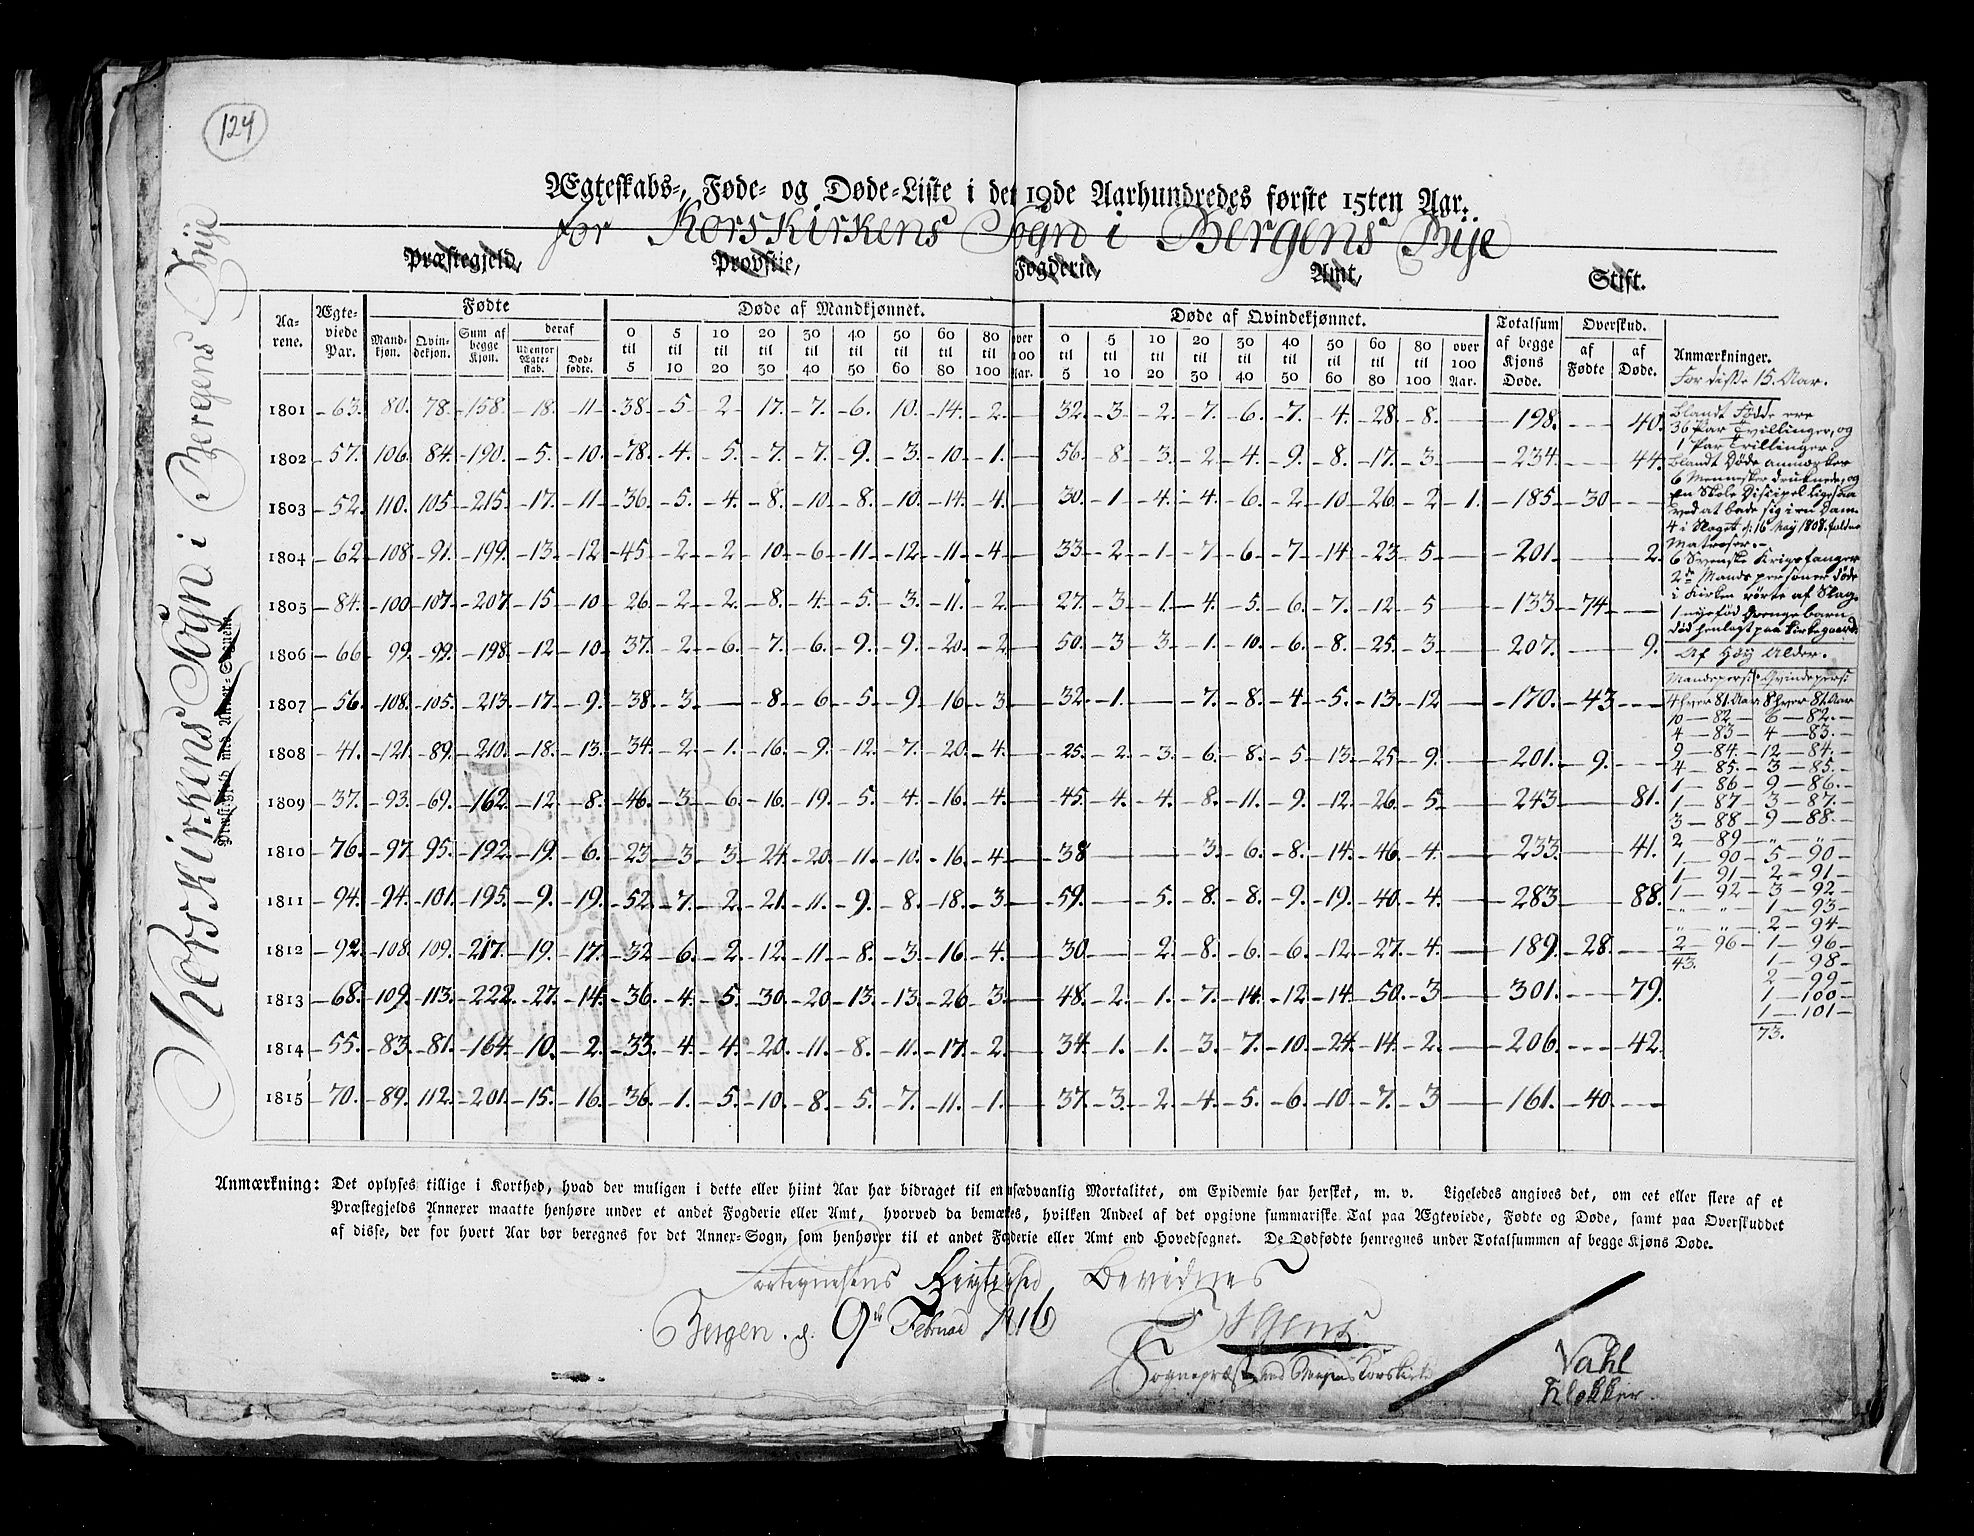 124
Ægteskabs-, Føde- og Døde-Liste i det 19de Aarhundredes første 15ten Aar.
for Korskirkens Sogn i Bergens Bije
Præstegjeld, Provstie, Fogderie, Amt, Stift.
Korskirkens Sogn i Bergens Bije
Præstegjeld med Annex-Sognene
Aarene. | Ægteviede Par. | Fødte | Døde af Mandkjønnet. | Døde af Qvindekjønnet. | Totalsum af begge Kjøns Døde. | Overskud. | Anmærkninger.
Mandkjøn. | Qvindekjøn. | Sum af begge Kjøn. | deraf | Udenfor Ægteskab. | Dødfødte. | 0 til 5 | 5 til 10 | 10 til 20 | 20 til 30 | 30 til 40 | 40 til 50 | 50 til 60 | 60 til 80 | 80 til 100 | over 100 Aar. | 0 til 5 | 5 til 10 | 10 til 20 | 20 til 30 | 30 til 40 | 40 til 50 | 50 til 60 | 60 til 80 | 80 til 100 | over 100 Aar. | af Fødte | af Døde.
1801 – 63. 80. 78. –158. –18. –11 –38. –5 –2 17. –7. –6. 10. –14. –2. — 32. –3 –2. –7. –6. –7. –4. –28. –8. — –198. --- 40.
1802 – 57. 106. 84. –190. –5. –10. –78. –4. –5. –7. –7. –9. –3. –10. –1. — 56. –8 –3. –2. –4. –9. –8. –17. –3. — –234. --- 44.
1803 – 52. 110. 105 –215. –17. –11 –36. –5. –4. –8. –10. –8. –10. –14. –4. — 30. –1 –4. –4. –6 –2. –10. –26. –2 –1. –185 –30 ---
1804 – 62. –108. –91. –199. –13. –12 –45. –2 –2 10. –6 –11. –12. –11. –4. — 33. –2 –1. –7. –6. –7. –14. –23. –5. — –201. --- 2.
1805 – 84. –100 –107. –207. –15. –10 –26. –2. –2. –8. –4. –5. –3. –11. –2. — 27. –3 –1. –4. –5. –6. –7. –12. –5 — –133 –74. ---
1806 – 66 –99. –99. –198. –12 –10. –37. –2 –6. –7. –6. –9. –9. –20. –2 — 50. –3 –3. –1. –10. –6. –8. –25. –3. — –207. --- 9.
1807 – 56. –108. –105. –213. –17. –9. –38. –3. — –8. –6 –5. –9. –16. –3 — 32. –1. — –7. –8. –4. –5. –13. –12 — –170. –43 ---
1808 – 41. –121. –89. –210. –18. –13. –34. –2. –1. –16. –9. –12. –7. –20. –4. — 25. –2. –3. –6. –8. –5 –13. –25 –9. — –201. –9. ---
1809 – 37. –93. –69. –162. –12. –8. –46. –3. –6. –16. –19. –5. –4. –16. –4. — 45. –4. –4. –8. –11. –9. –12. –26. –5. — –243 — 81.
1810 – 76. –97. 95. –192. –19. –6. –23 –3 –3. –24. –20. –11. –10. –16. –4. — 38 — — –3. –6. –8. –14. –46. –4. — –233. — 41.
1811 – 94. –94. –101. –195. –9. –19. –52. –7. –2. –21. –11. –9. –8. –18. –3. — 59. — –5. –8. –8. –9. –19. –40. –4. — –283. --- 88.
1812 – 92. –108. 109. –217. –19. –17. –32 –6. –2. –12. –11. –8. –3. –16. –4. — 30 — –2. –8. –6. –6. –12. –27. –4. — –189. –28. ---
1813 – 68. –109. –113. –222. –27. –14. –36. –4. –5. –30. –20. –13. –13. –26. –3. — 48. –2. –1. –7. –14. –12. –14. –50. –3 — –301. --- 79.
1814 – 55. –83. –81. –164. –10. –2. –33. –4. –4. –20. –11. –8. –11. –17. –2. — 34. –1. –1. –3. –7. –10. –24. –14. –2. — –206. --- 42.
1815 – 70. –89. 112. –201. –15. –16. –36. –1. –5. –10. –8. –5. –7. –11. –1. — 37. –3. –2. –4. –5. –6. –10. –7. –3 — –161. –40. ---
For disse 15. Aar.
Blandt Fødde ere
36 Par Tvillinger, og
1 Par Trillinger.
Blandt Døde anmærkes
6 Mennesker druknede, og
en Skole Discipel ligesaa
ved at bade sig i en Dam.
4 i Slaget d: 16 Maij 1808. faldne
Matroser. –
6 Svenske Krigsfanger
2de Mands personer døde
i Kirken rørte af Slag.
1 nyefød Drengebarn
død henlagt paa Kirkegaard.
Af Høy Alder.
Mandspers: Qvindepers:
4 hver 81. Aar 8 hver 81. Aar
10 – 82. – 6 – 82. –
4 – 83 – 4 – 83. –
9 – 84. – 12 – 84. –
4 – 85. – 3 – 85. –
1 – 86 – 9 – 86. –
1 – 87 – 3 – 87. –
3 – 88 – 9 – 88. –
2 – 89 – „ – „ –
1 – 90 – 5 – 90 –
1 – 91 – 2 – 91 –
1 – 92 – 3 – 92 –
„ – „ – 1 – 93 –
„ – „ – 2 – 94 –
2 – 96 – 1 – 96 –
43. 1 – 98 –
2 – 99 –
1 – 100 –
1 – 101 –
73.
Anmærkning: Det oplyses tillige i Korthed, hvad der muligen i dette eller hiint Aar har bidraget til en usædvanlig Mortalitet, om Epidemie har hersket, m. v. Ligeledes angives det, om eet eller flere af et
Præstegjelds Annexer maatte henhøre under et andet Fogderie eller Amt, hvorved da bemærkes, hvilken Andeel af det opgivne summariske Tal paa Ægteviede, Fødte og Døde, samt paa Overskuddet
af disse, der for hvert Aar bør beregnes for det Annex-Sogn, som henhører til et andet Fogderie eller Amt end Hovedsognet. De Dødfødte henregnes under Totalsummen af begge Kjøns Døde.
Fortegnelsens Rigtighed Bevidnes
Bergen. d. 9de Februar 1816
Sognepræst ved Bergens Korskirke
Vahl
Klokker.